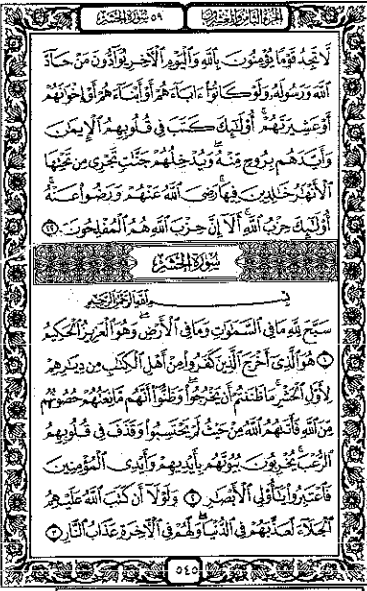 الجزء الثامن والعشرون ٥٩ سورة الحشر
لَّا تَجِدُ قَوْمًا يُؤْمِنُونَ بِٱللَّهِ وَٱلْيَوْمِ ٱلْءَاخِرِ يُوَآدُّونَ مَنْ حَآدَّ
ٱللَّهَ وَرَسُولَهُۥ وَلَوْ كَانُوٓا۟ ءَابَآءَهُمْ أَوْ أَبْنَآءَهُمْ أَوْ إِخْوَٰنَهُمْ
أَوْ عَشِيرَتَهُمْ ۚ أُو۟لَٰٓئِكَ كَتَبَ فِى قُلُوبِهِمُ ٱلْإِيمَٰنَ
وَأَيَّدَهُم بِرُوحٍ مِّنْهُ ۖ وَيُدْخِلُهُمْ جَنَّٰتٍ تَجْرِى مِن تَحْتِهَا
ٱلْأَنْهَٰرُ خَٰلِدِينَ فِيهَا ۚ رَضِىَ ٱللَّهُ عَنْهُمْ وَرَضُوا۟ عَنْهُ ۚ
أُو۟لَٰٓئِكَ حِزْبُ ٱللَّهِ ۚ أَلَآ إِنَّ حِزْبَ ٱللَّهِ هُمُ ٱلْمُفْلِحُونَ ٢٢
سورة الحشر
بِسْمِ ٱللَّهِ ٱلرَّحْمَٰنِ ٱلرَّحِيمِ
سَبَّحَ لِلَّهِ مَا فِى ٱلسَّمَٰوَٰتِ وَمَا فِى ٱلْأَرْضِ ۖ وَهُوَ ٱلْعَزِيزُ ٱلْحَكِيمُ
١ هُوَ ٱلَّذِىٓ أَخْرَجَ ٱلَّذِينَ كَفَرُوا۟ مِنْ أَهْلِ ٱلْكِتَٰبِ مِن دِيَٰرِهِمْ
لِأَوَّلِ ٱلْحَشْرِ ۚ مَا ظَنَنتُمْ أَن يَخْرُجُوا۟ ۖ وَظَنُّوٓا۟ أَنَّهُم مَّانِعَتُهُمْ حُصُونُهُم
مِّنَ ٱللَّهِ فَأَتَىٰهُمُ ٱللَّهُ مِنْ حَيْثُ لَمْ يَحْتَسِبُوا۟ ۖ وَقَذَفَ فِى قُلُوبِهِمُ
ٱلرُّعْبَ ۚ يُخْرِبُونَ بُيُوتَهُم بِأَيْدِيهِمْ وَأَيْدِى ٱلْمُؤْمِنِينَ
فَٱعْتَبِرُوا۟ يَٰٓأُو۟لِى ٱلْأَبْصَٰرِ ٢ وَلَوْلَآ أَن كَتَبَ ٱللَّهُ عَلَيْهِمُ
ٱلْجَلَآءَ لَعَذَّبَهُمْ فِى ٱلدُّنْيَا ۖ وَلَهُمْ فِى ٱلْءَاخِرَةِ عَذَابُ ٱلنَّارِ ٣
٥٤٥